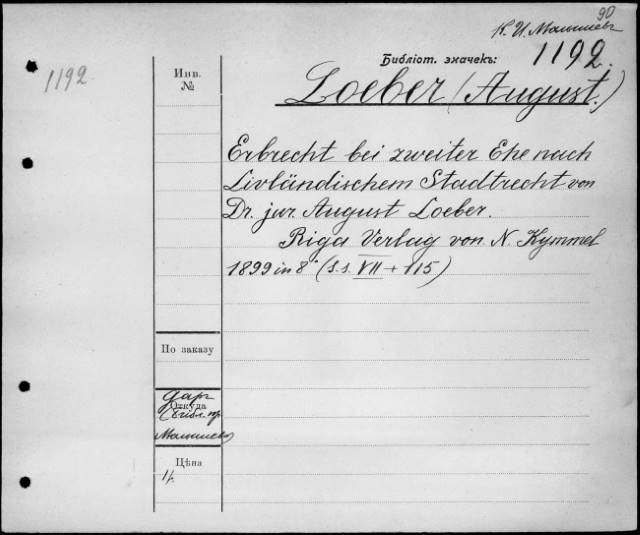 90
К. И. Малышевъ
1192
Инв.
№
Библіот. значекъ:
1192.
Loeber (August.)
Erbrecht bei zweiter Ehe nach
Livländischem Stadtrecht von
Dr. jur. August Loeber.
Riga Verlag von N. Kymmel
1899 in 8° (s.s. VII + 115)
По заказу
даръ
Откуда
Малышева)
Цѣна